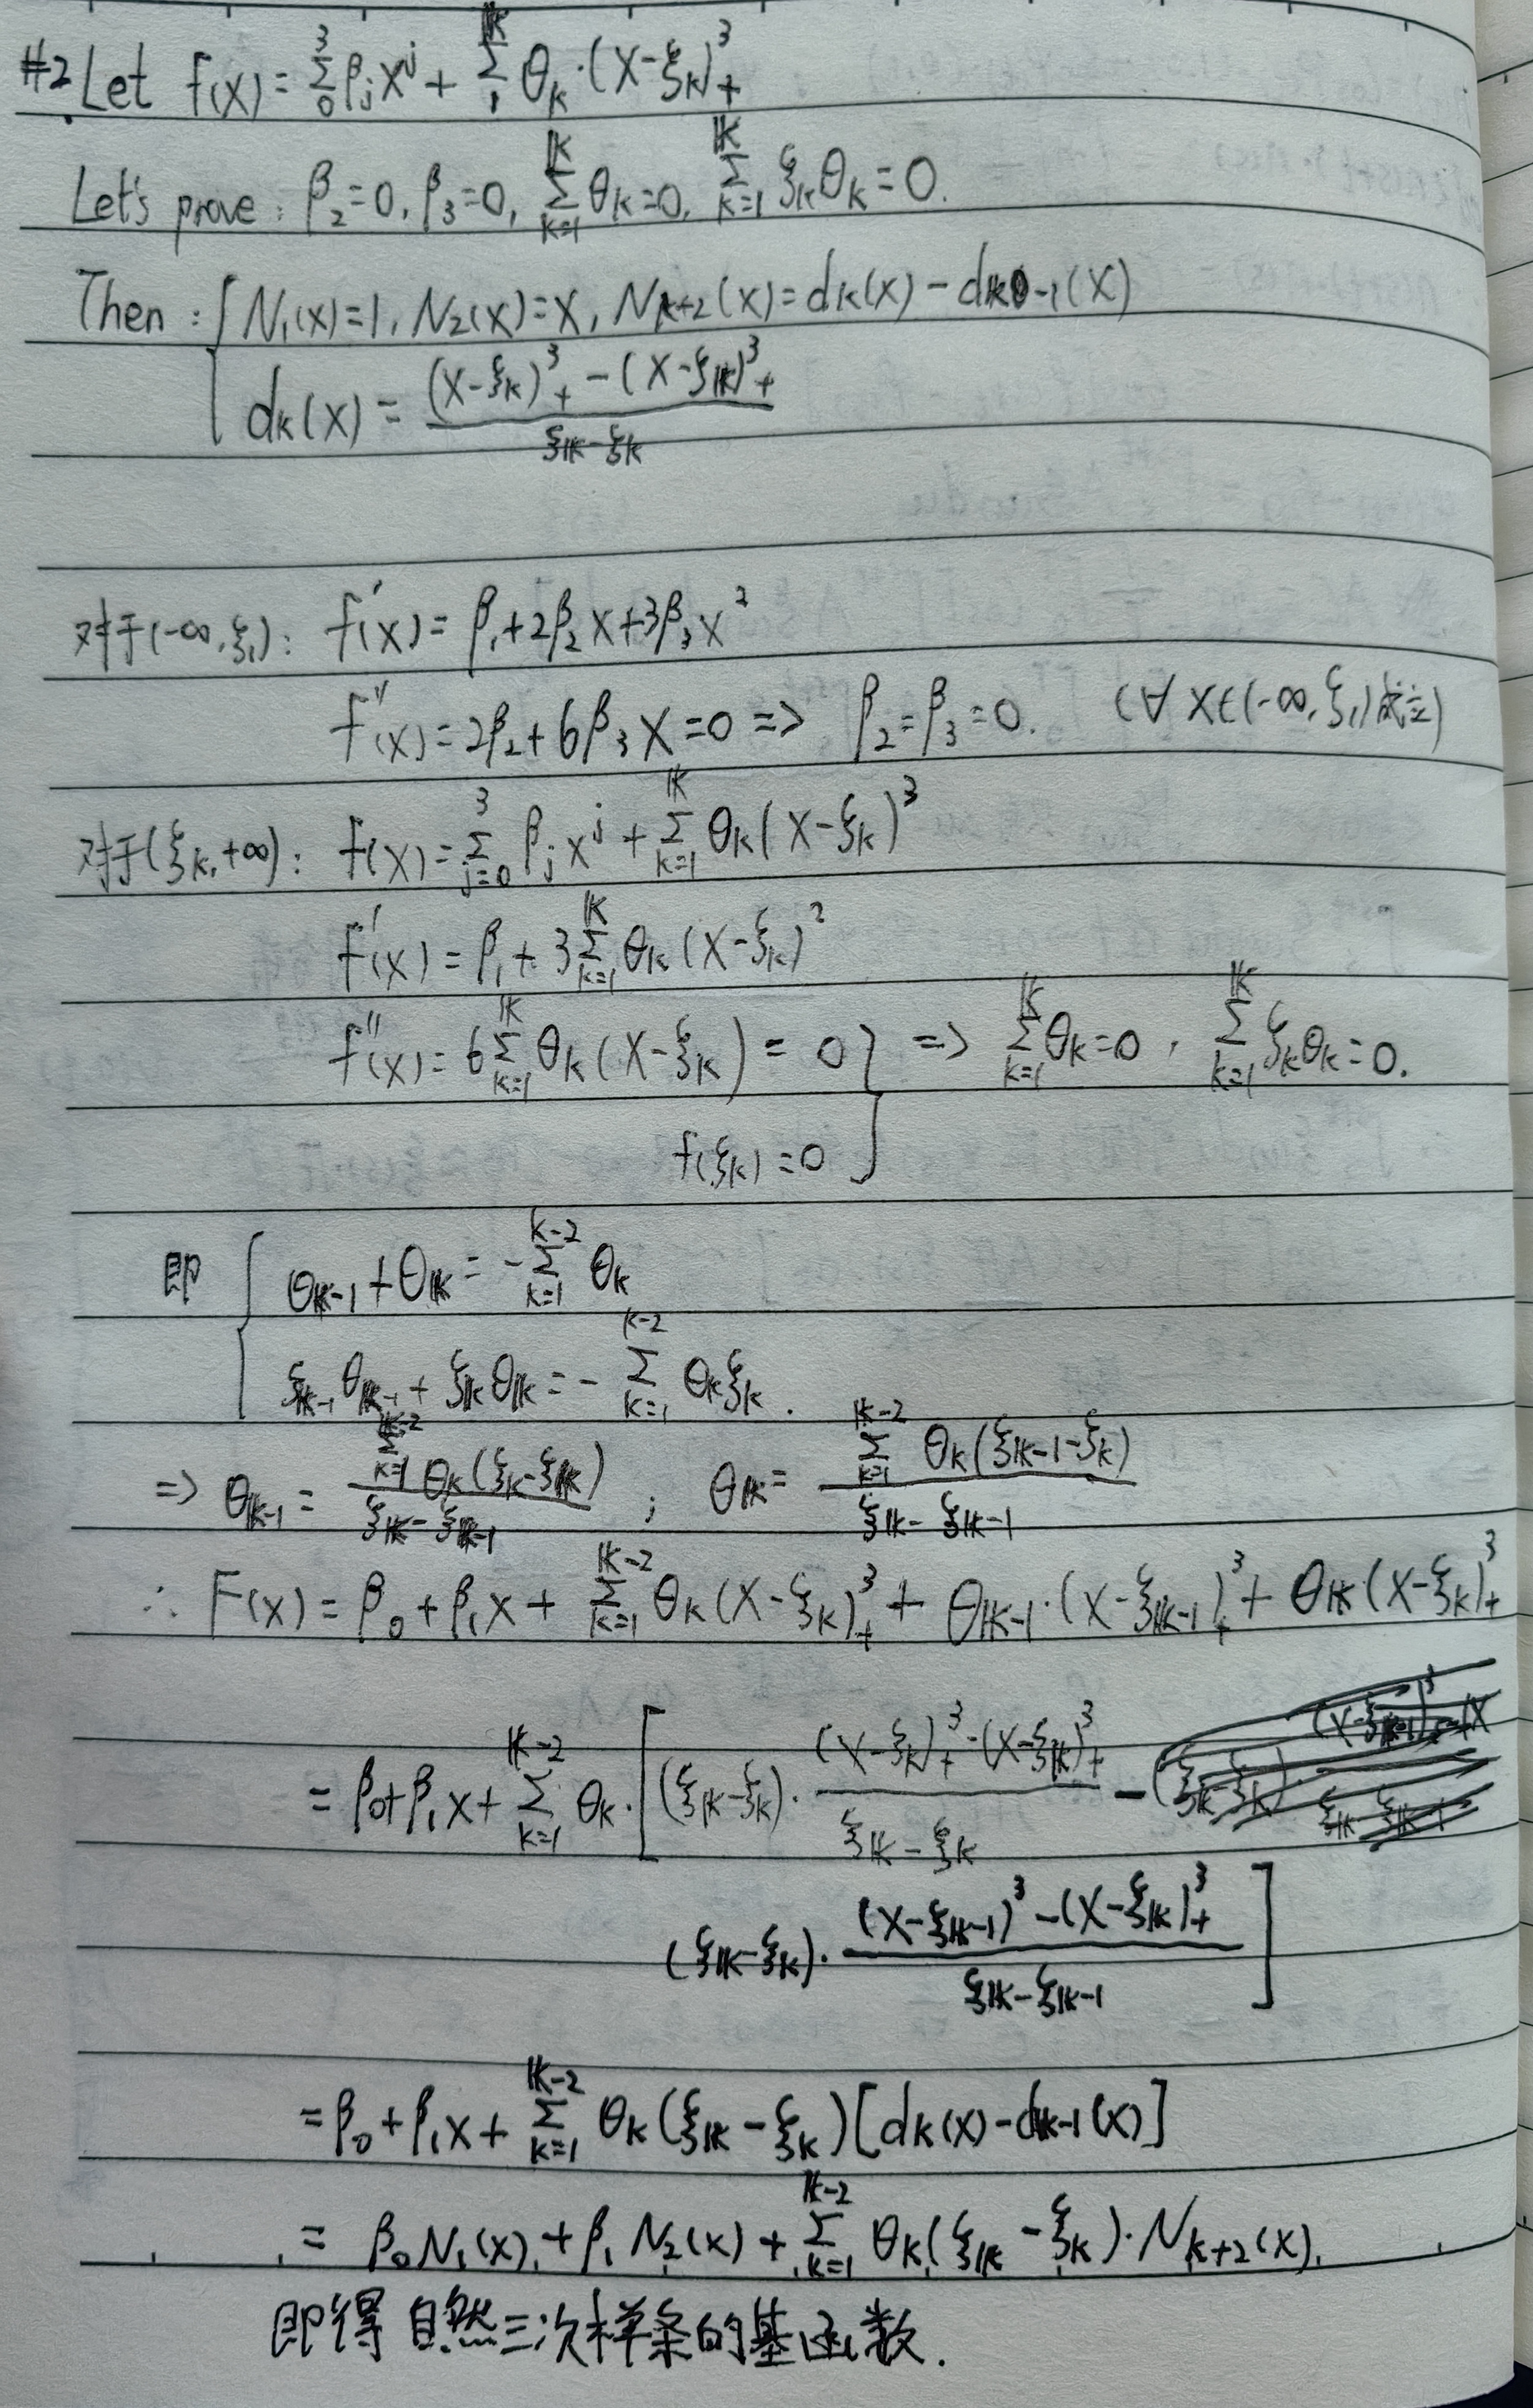 #2. Let f(x) = Σ_0^3 β_j x^j + Σ_1^K θ_k·(x-ξ_k)_+^3
Let's prove: β_2=0, β_3=0, Σ_{k=1}^K θ_k=0, Σ_{k=1}^K ξ_kθ_k=0.
Then: { N_1(x)=1, N_2(x)=x, N_{k+2}(x)=d_k(x)-d_{K-1}(x)
d_k(x) = ((x-ξ_k)_+^3 - (x-ξ_K)_+^3) / (ξ_K-ξ_k)
对于(-∞,ξ_1): f'(x) = β_1+2β_2x+3β_3x^2
f''(x) = 2β_2+6β_3x=0 => β_2=β_3=0. (∀ x∈(-∞,ξ_1)成立)
对于(ξ_K,+∞): f(x) = Σ_{j=0}^3 β_j x^j + Σ_{k=1}^K θ_k(x-ξ_k)^3
f'(x) = β_1+3Σ_{k=1}^K θ_k(x-ξ_k)^2
f''(x) = 6Σ_{k=1}^K θ_k(x-ξ_k) = 0 } => Σ_{k=1}^K θ_k=0, Σ_{k=1}^K ξ_kθ_k=0.
f(ξ_k)=0
即 { θ_{K-1}+θ_K = -Σ_{k=1}^{K-2} θ_k
ξ_{K-1}θ_{K-1}+ξ_Kθ_K = -Σ_{k=1}^{K-2} θ_kξ_k.
=> θ_{K-1} = (Σ_{k=1}^{K-2} θ_k(ξ_k-ξ_K)) / (ξ_K-ξ_{K-1}) ; θ_K = (Σ_{k=1}^{K-2} θ_k(ξ_{K-1}-ξ_k)) / (ξ_K-ξ_{K-1})
∴ F(x) = β_0+β_1x+Σ_{k=1}^{K-2} θ_k(x-ξ_k)_+^3+θ_{K-1}·(x-ξ_{K-1})_+^3+θ_K(x-ξ_K)_+^3
= β_0+β_1x+Σ_{k=1}^{K-2} θ_k·[(ξ_K-ξ_k)·((x-ξ_k)_+^3-(x-ξ_K)_+^3) / (ξ_K-ξ_k) -
(ξ_K-ξ_k)·((x-ξ_{K-1})^3-(x-ξ_K)_+^3) / (ξ_K-ξ_{K-1})]
= β_0+β_1x+Σ_{k=1}^{K-2} θ_k(ξ_K-ξ_k)[d_k(x)-d_{K-1}(x)]
= β_0N_1(x)+β_1N_2(x)+Σ_{k=1}^{K-2} θ_k(ξ_K-ξ_k)·N_{k+2}(x).
即得自然三次样条的基函数.